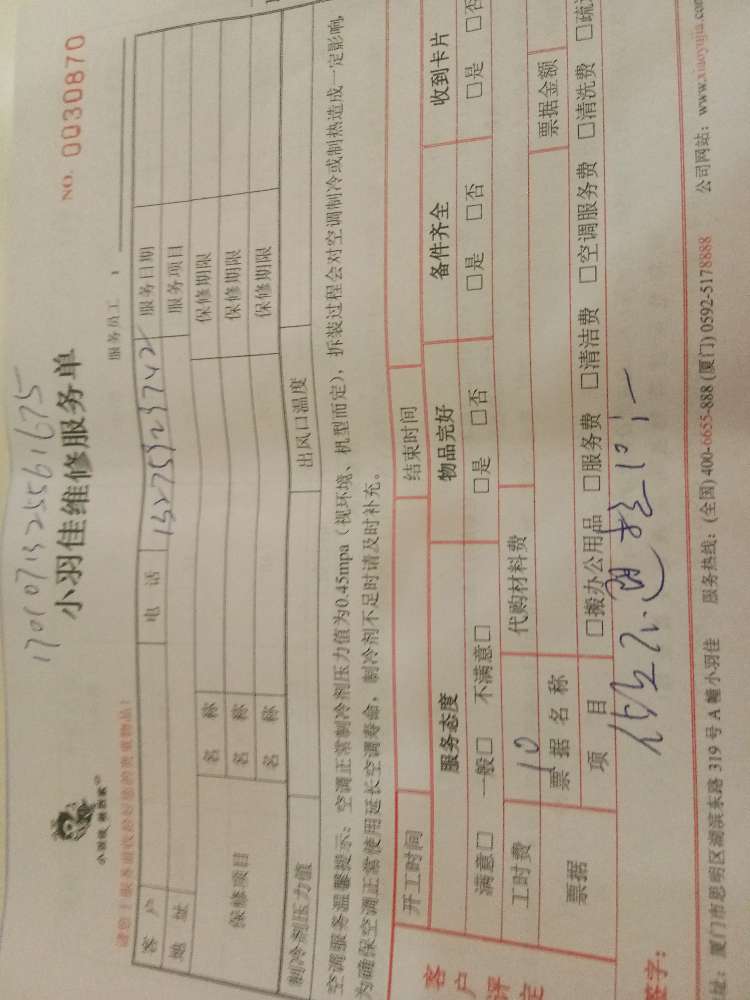 小羽佳维修服务单
NO. 0030870
服务员工
客 户
电 话
服务日期
地 址
服务项目
保修项目
名 称
保修期限
名 称
保修期限
名 称
保修期限
制冷剂压力值
出风口温度
空调服务温馨提示：空调正常制冷剂压力值为0.45mpa（视环境、机型而定），拆装过程会对空调制冷或制热造成一定影响,
为确保空调正常使用延长空调寿命，制冷剂不足时请及时补充。
客户评定
开工时间
结束时间
服务态度
物品完好
备件齐全
收到卡片
满意□ 一般□ 不满意□
□是 □否
□是 □否
□是 □否
工时费
10
代购材料费
票据
票 据 名 称
票据金额
项 目
□搬办公用品 □服务费 □清洁费 □空调服务费 □清洗费
签字：
址：厦门市思明区湖滨东路 319 号 A 幢小羽佳 服务热线：(全国) 400-6655-888 (厦门) 0592-5178888 公司网站：www.xiaoyujia.com